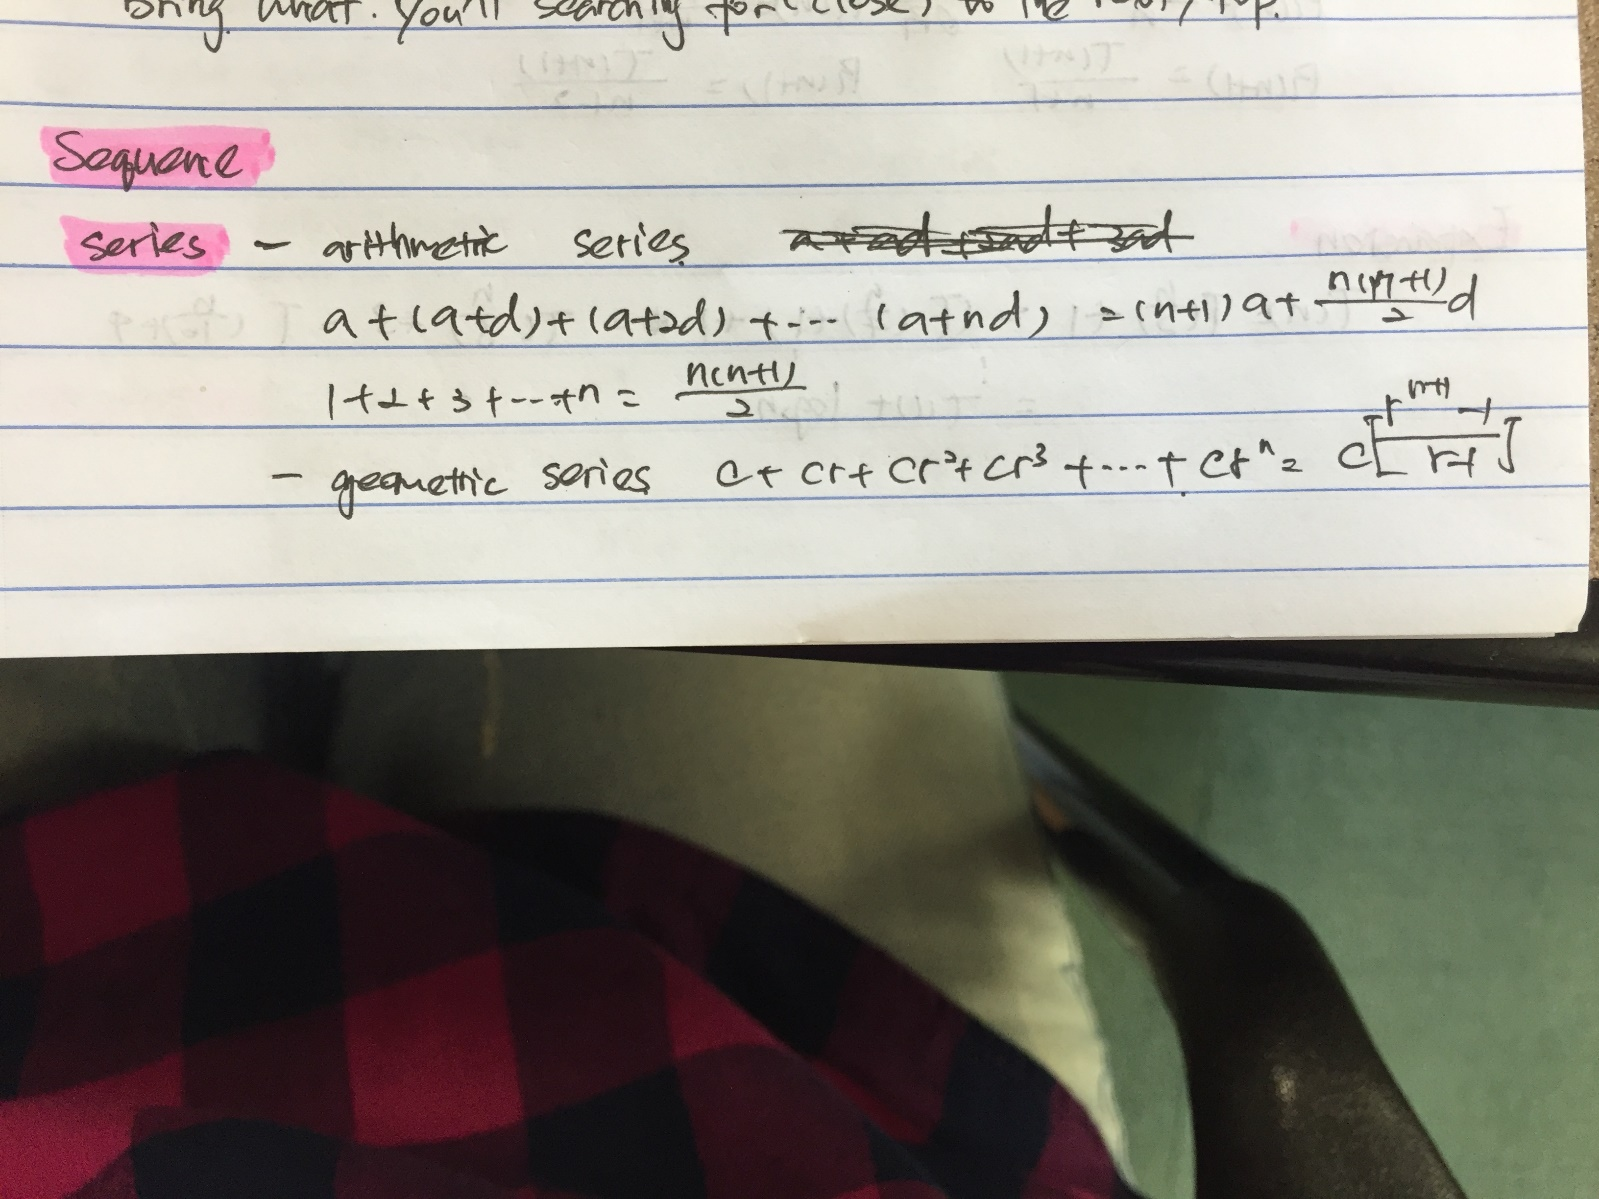 bring what. You'll searching for (close) to the root/top.
Sequence
series - arithmetric series
a + (a+d) + (a+2d) + --- (a+nd) = (n+1) a + n(n+1)/2 d
1+2+3+---+n = n(n+1)/2
- geometric series c + cr + cr² + cr³ + ---- + crⁿ = c[r^(n+1) -1 / r-1]